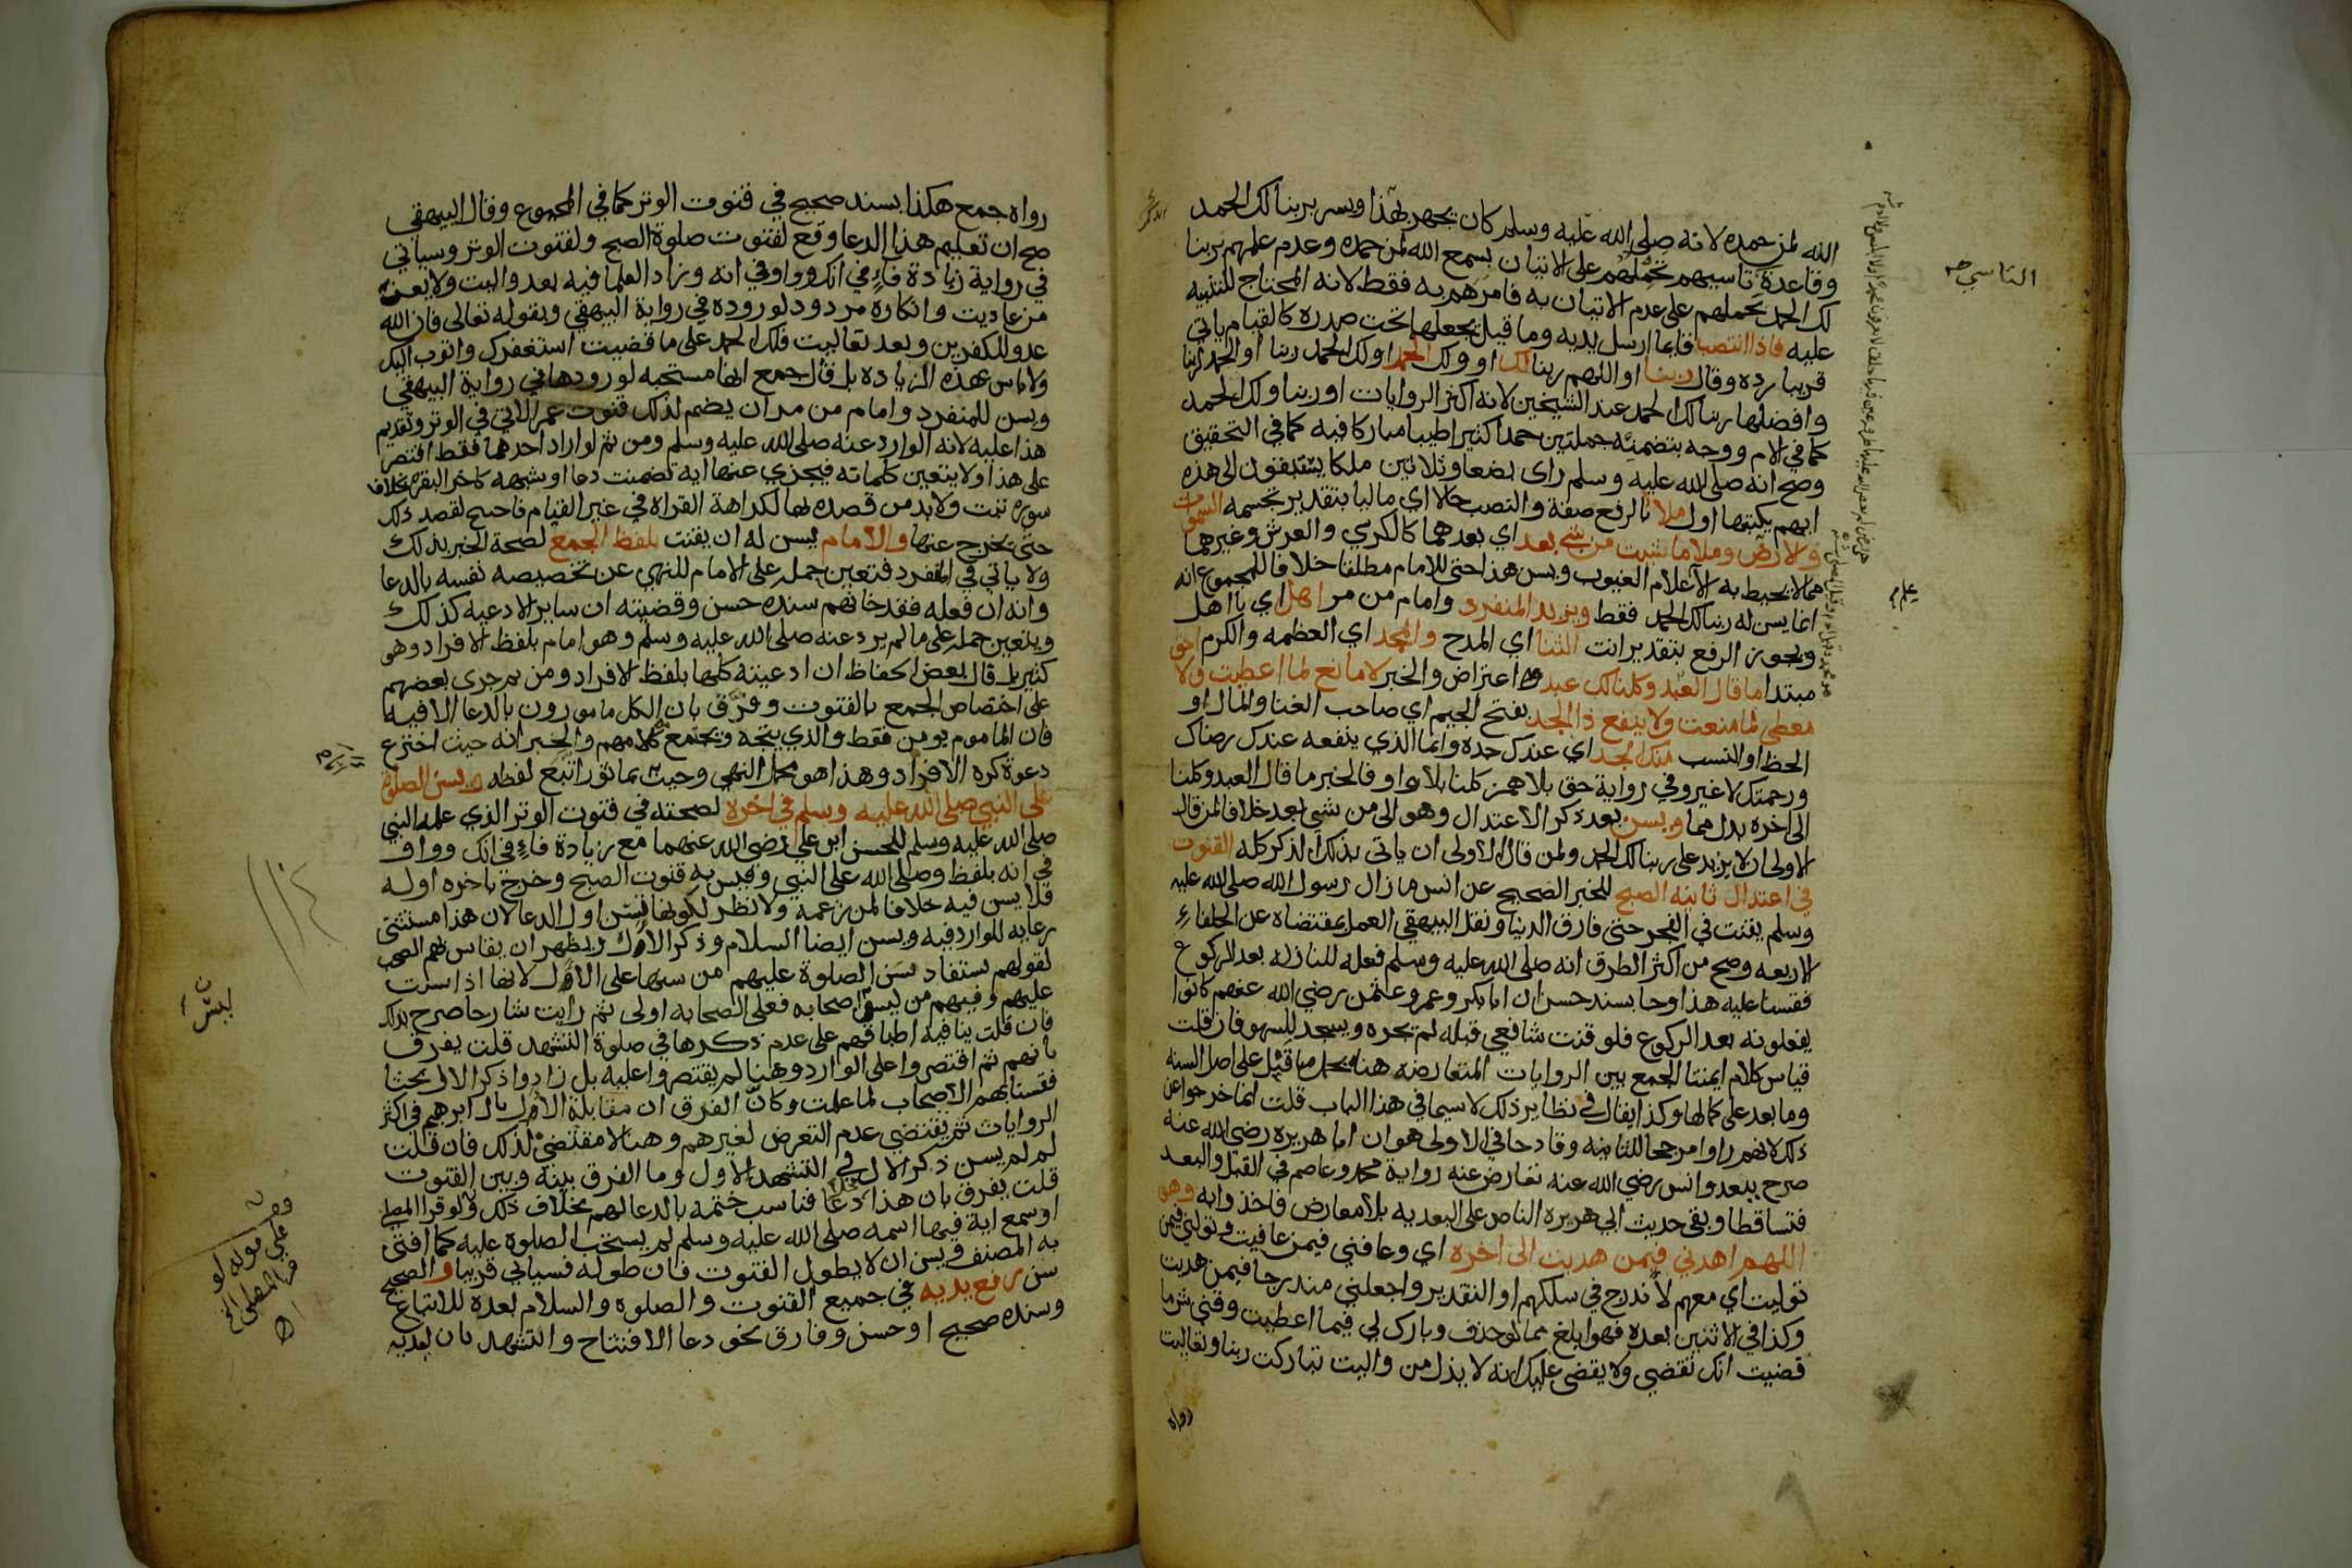 الله لمن حمده لانه صلى الله عليه وسلم كان يجهر بهذا ويسر بربنا لك الحمد
وقاعدة تاسيهم تحملهم على الاتيان بسمع الله لمن حمده وعدم علمهم بربنا
لك الحمد يحملهم على عدم الاتيان به فامرهم به فقط لانه المحتاج للتنبيه
عليه فاذا انتصب قايما ارسل يديه وما قيل يجعلهما تحت صدره كالقيام ياتي
قريبا رده وقال ربنا او اللهم ربنا لك او ولك الحمد او لك الحمد ربنا او الحمد لربنا
وافضلها ربنا لك الحمد عند الشيخين لانه اكثر الروايات او ربنا ولك الحمد
كما في الام ووجه بتضمنه جملتين حمدا كثيرا طيبا مباركا فيه كما في التحقيق
وصح انه صلى الله عليه وسلم راى بضعا وثلاثين ملكا يستبقون الى هذه
ايهم يكتبها اول ملا بالرفع صفة والنصب حالا اي ماليا بتقدير تجسمه السموات
ولارض وملا ما شيت من شي بعد اي بعدهما كالكرسي والعرش وغيرهما
مما لا يحيط به الا علام الغيوب ويسن هذا حتى للامام مطلقا خلافا للمجموع انه
انما يسن له ربنا لك الحمد فقط ويزيد المنفرد وامام من مر اهل اي يا اهل
ويجوز الرفع بتقدير انت الثنا اي المدح والمجد اي العظمه والكرم احق
مبتدا ما قال العبد وكلنا لك عبد اعتراض والخبر لا مانع لما اعطيت ولا
معطي لما منعت ولا ينفع ذا الجد بفتح الجيم اي صاحب الغنا والمال او
الحظ او النسب منك الجد اي عندك جده وانما الذي ينفعه عندك رضاك
ورحمتك لا غير وفي رواية حق بلا همز كلنا بلا واو فالخبر ما قال العبد وكلنا
الى اخره بدل مما ويسن بعد ذكر الاعتدال وهو الى من شي بعد خلافا لمن قال
الاولى ان لا يزيد على ربنا لك الحمد ولمن قال الاولى ان ياتي بذلك الذكر كله القنوت
في اعتدال ثانية الصبح للخبر الصحيح عن انس ما زال رسول الله صلى الله عليه
وسلم يقنت في الفجر حتى فارق الدنيا ونقل البيهقي العمل بمقتضاه عن الخلفاء
الاربعه وصح من اكثر الطرق انه صلى الله عليه وسلم فعله للنازلة بعد الركوع
فقسنا عليه هذا وجا بسند حسن ان ابا بكر وعمر وعثمن رضي الله عنهم كانوا
يفعلونه بعد الركوع فلو قنت شافعي قبله لم يجزه ويسجد للسهو فان قلت
قياس كلام ايمتنا الجمع بين الروايات المتعارضه هنا بحمل ما قبل على اصل السنه
وما بعد على كمالها وكذا يقال في نظاير ذلك لا سيما في هذا الباب قلت انما خرجوا عن
ذلك لانهم راوا مرجحا للثانيه وقادحا في الاولى هو ان ابا هريره رضي الله عنه
صرح ببعد وانس رضي الله عنه تعارض عنه رواية محمد وعاصم في القبل والبعد
فتساقطا وبقي حديث ابي هريره الناص على البعديه بلا معارض فاخذوا به وهو
اللهم اهدني فيمن هديت الى اخره اي وعافني فيمن عافيت وتولني فيمن
توليت اي معهم لاندرج في سلكهم او التقدير واجعلني مندرجا فيمن هديت
وكذا في الاثنين بعده فهو ابلغ مما لو حذف وبارك لي فيما اعطيت وقني شر ما
قضيت انك تقضي ولا يقضى عليك انه لا يذل من واليت تباركت ربنا وتعاليت
رواه
التاسي صح
رواه جمع هكذا بسند صحيح في قنوت الوتر كما في المجموع وقال البيهقي
صح ان تعليم هذا الدعا وقع لقنوت صلوة الصبح ولقنوت الوتر وسياتي
في رواية زيادة فاء في انك وواو في انه وزاد العلما فيه بعد واليت ولا يعز
من عاديت وانكاره مردود لوروده في رواية البيهقي وبقوله تعالى فان الله
عدو للكفرين وبعد تعاليت فلك الحمد على ما قضيت استغفرك واتوب اليك
ولا باس بهذه الزيادة بل قال جمع انها مستحبه لورودها في رواية البيهقي
ويسن للمنفرد وامام من مر ان يضم لذلك قنوت عمر الاتي في الوتر وتقديم
هذا عليه لانه الوارد عنه صلى الله عليه وسلم ومن ثم لو اراد احدهما فقط اقتصر
على هذا ولا يتعين كلماته فيجزي عنها اية تضمنت دعا او شبهه كاخر البقره بخلاف
سورة تبت ولا بد من قصده بها لكراهة القراة في غير القيام فاحتيج لقصد ذلك
حتى يخرج عنها والامام يسن له ان يقنت بلفظ الجمع لصحة الخبر بذلك
ولا ياتي في المنفرد فتعين حمله على الامام للنهي عن تخصيصه نفسه بالدعا
وانه ان فعله فقد خانهم سنده حسن وقضيته ان ساير الادعيه كذلك
ويتعين حمله على ما لم يرد عنه صلى الله عليه وسلم وهو امام بلفظ الافراد وهو
كثير بل قال بعض الحفاظ ان ادعيته كلها بلفظ الافراد ومن ثم جرى بعضهم
على اختصاص الجمع بالقنوت وفرق بان الكل مامورون بالدعا الا فيه
فان الماموم يومن فقط والذي يتجه ويجتمع به كلامهم والخبر انه حيث اخترع
دعوة كره الافراد وهذا هو محمل النهي وحيث بماثور اتبع لفظه ويسن الصلوة
على النبي صلى الله عليه وسلم في اخره لصحته في قنوت الوتر الذي علمه النبي
صلى الله عليه وسلم للحسن ابن علي رضي الله عنهما مع زيادة فاء في انك وواو
في انه بلفظ وصلى الله على النبي وقيس به قنوت الصبح وخرج باخره اوله
فلا يسن فيه خلافا لمن زعمه ولا نظر لكونها تسن اول الدعا لان هذا مستثنى
رعاية للوارد فيه ويسن ايضا السلام وذكر الال ويظهر ان يقاس بهم الصحب
لقولهم يستفاد سن الصلوة عليهم من سنها على الال لانها اذا سنت
عليهم وفيهم من ليسوا صحابه فعلى الصحابه اولى ثم رايت شارحا صرح بذلك
فان قلت ينافيه اطباقهم على عدم ذكرها في صلوة التشهد قلت يفرق
بانهم ثم اقتصروا على الوارد وهنا لم يقتصروا عليه بل زادوا ذكر الال بحثا
فقسنا بهم الاصحاب لما علمت وكان الفرق ان مقابلة الال بال ابرهيم في اكثر
الروايات ثم يقتضي عدم التعرض لغيرهم وهنا لا مقتضي لذلك فان قلت
لم لم يسن ذكر الال في التشهد الاول وما الفرق بينه وبين القنوت
قلت يفرق بان هذا دعا فناسب ختمه بالدعا لهم بخلاف ذلك ولو قرا المصلي
او سمع اية فيها اسمه صلى الله عليه وسلم لم يستحب الصلوة عليه كما افتى
به المصنف ويسن ان لا يطول القنوت فان طوله فسياتي قريبا والصحيح
سن رفع يديه في جميع القنوت والصلوه والسلام بعده للاتباع
وسنده صحيح او حسن وفارق نحو دعا الافتتاح والتشهد بان ليديه